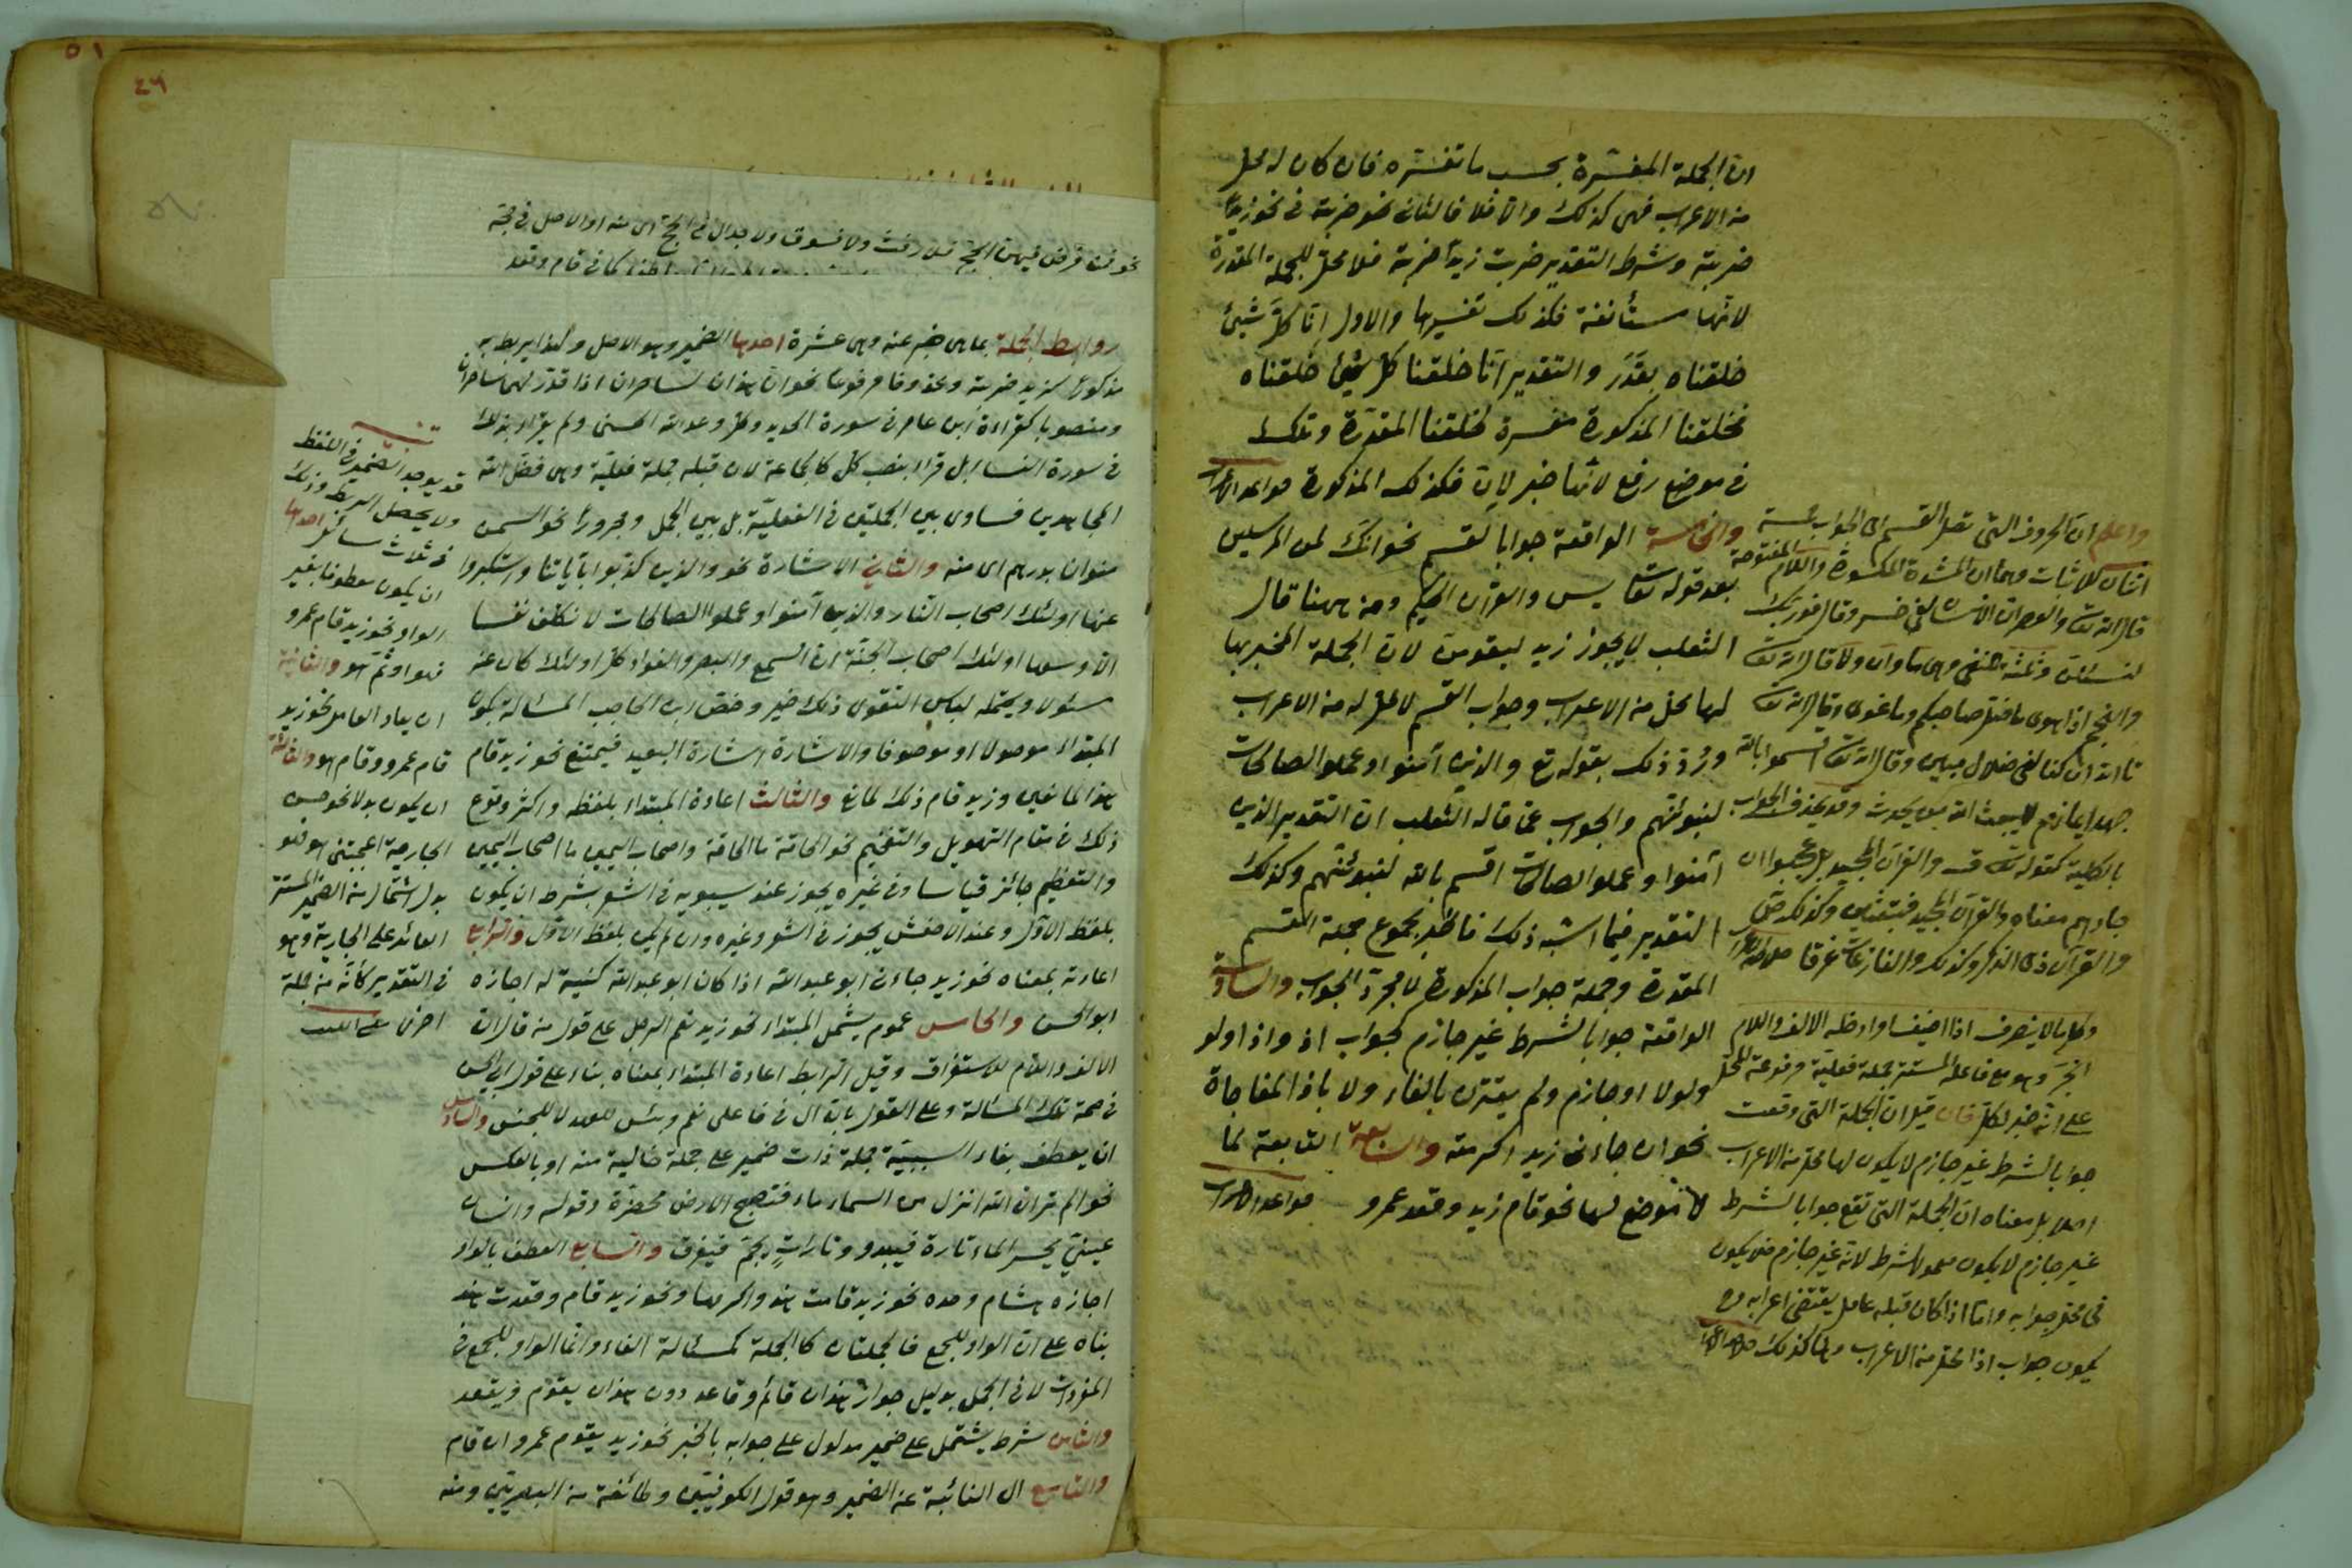 ان الجملة المفسّرة بحسب ما تفسّره فان كان له محل
من الاعراب فهي كذلك والا فلا فالثاني نحو ضربته في نحو زيداً
ضربته وشرط التقدير ضربت زيداً ضربته فلا محل للجملة المقدرة
لانّها مستأنفة فكذلك تفسيرها والاول انّا كلّ شيئ
خلقناه بقدَر والتقدير انّا خلقنا كل شيئ خلقناه
فخلقنا المذكورة مفسرة لخلقنا المقدّرة وتلك
في موضع رفع لانّها خبر لاِنّ فكذلك المذكورة قواعد الاعراب
والخامسة الواقعة جوابا لقسم نحو انّك لمن المرسلين
بعد قوله تعا يس والقرآن الحكيم ومن ههنا قال
الثعلب لا يجوز زيد ليقومنّ لان الجملة المخبر بها
لها محل من الاعراب وجواب القسم لا محل له من الاعراب
ورُدّ ذلك بقوله تع والذين آمنوا وعملو الصالحات
لنبوئنّهم والجواب عمّا قاله الثعلب ان التقدير الذين
آمنوا وعملو الصالحات اقسم بالله لنبوئنّهم وكذلك
التقدير فيما اشبه ذلك فالخبر مجموع جملة القسم
المقدرة وجملة جواب المذكورة لا مجرّد الجواب والسادسة
الواقعة جوابا لشرط غير جازم كجواب اذ واذا ولو
ولولا او جازم ولم يقترن بالفاء ولا باذا المفاجاة
نحو ان جاءنى زيد اكرمته والسابعة التابعة لما
لا موضع لها نحو قام زيد وقعد عمرو قواعد الاعراب
واعلم ان الحروف التى تصل القسم الى الجواب خمسة
اثنان للاثبات وهما ان المشددة المكسورة واللام المفتوحة
قال الله تعا والعصر ان الانسان لفى خسر وقال فوربك
لنسئلنّ وثلثة للنفى وهى ما وان ولا قال الله تعا
والنجم اذا هوى ما ضل صاحبكم وما غوى وقال الله تعا
تا الله ان كنا لفى ضلال مبين وقال الله تعا اقسموا بالله
جهد ايمانهم لا يبعث الله من يموت وقد يحذف الجواب
بالكلية كقوله تعا ق والقرآن المجيد بل عجبوا ان
جاءهم معناه والقرآن المجيد لتبعثن وكذلك ص
والقرآن ذى الذكر وكذلك والنازعات غرقا
وكل ما لا ينصرف اذا اضيف او ادخله الالف واللام
انجرّ وهو مع فاعله المستتر جملة فعلية مرفوعة المحل
على انه خبر لكل فان قيل ان الجملة التى وقعت
جوابا لشرط غير جازم لا يكون لها محل من الاعراب
اصلا بل معناه ان الجملة التى تقع جوابا لشرط
غير جازم لا يكون معمولا لشرط لانه غير جازم فلا يكون
فى محل جوابه واما اذا كان قبله عامل يقتضى اعرابه
يكون جواب اذا محل من الاعراب وانها كذلك
٥١
٤٦
نحو فمن فرض فيهن الحج فلا رفث ولا فسوق ولا جدال في الحج اى منه او الاصل في حجه
كما في قام وقعد
روابط الجملة بما هى خبر عنه وهى عشرة احدها الضمير وهو الاصل ولهذا يربط به
مذكورا كزيد ضربته ومحذوفا مرفوعا نحو ان هذان لساحران اذا قدّر لهما ساحران
ومنصوبا كقراءة ابن عامر في سورة الحديد وكل وعد الله الحسنى ولم يقرأ بذلك
في سورة النساء بل قرأ بنصب كل كالجماعة لان قبله جملة فعليّة وهى فضّل الله
المجاهدين فساوى بين الجملتين في الفعليّة بل بين الجمل ومجروراً نحو السمن
منوان بدرهم اى منه والثاني الاشارة نحو والذين كذّبوا بآياتنا واستكبروا
عنها اولئك اصحاب النّار والذين آمنوا وعملوا الصالحات لا نكلّف نفسا
الّا وسعها اولئك اصحاب الجنّة ان السمع والبصر والفؤاد كلّ اولئك كان عنه
مسئولا ويحتمله لباس التقوى ذلك خير وخصّ ابن الحاجب المسئالة بكون
المبتداء موصولا او موصوفا والاشارة اشارة البعيد فيمتنع نحو زيد قام
هذا لمانعين وزيد قام ذلك لمانع والثالث اعادة المبتداء بلفظه واكثر وقوع
ذلك في مقام التهويل والتفخيم نحو الحاقّة ما الحاقة واصحاب اليمين ما اصحاب اليمين
والتعظيم جائز قياسا وفي غيره يجوز عند سيبويه في الشعر بشرط ان يكون
بلفظ الاوّل وعند الاخفش يجوز في الشعر وغيره وان لم يكن بلفظ الاوّل والرابع
اعادته بمعناه نحو زيد جاءنى ابو عبدالله اذا كان ابو عبدالله كنية له اجازه
ابو الحسن والخامس عموم يشمل المبتداء نحو زيد نعم الرجل على قول من قال ان
الالف واللام للاستغراق وقيل الرابط اعادة المبتداء بمعناه بناء على قول ابى الحسن
في صحة تلك المسئالة وعلى القول بانّ ال في فاعلى نعم وبئس للعهد لا للجنس والسادس
ان يعطف بفاء السببيّة جملة ذات ضمير على جملة خالية منه او بالعكس
نحو الم تر ان الله انزل من السماء ماء فتصبح الارض مخضرّة وقوله وانسان
عينىَ يحسر الماء تارة فيبدو وتاراتٍ يجمّ فيغرق والسابع العطف بالواو
اجازه هشام وحده نحو زيد قامت هند واكرمها ونحو زيد قام وقعدت هند
بناه على ان الواو للجمع فالجملتان كالجملة كمسئالة الفاء وانّما الواو للجمع في
المفردات لا في الجمل بدليل جواز هذان قائم وقاعد دون هذان يقوم ويقعد
والثامن شرط يشتمل على ضمير مدلول على جوابه بالخبر نحو زيد يقوم عمرو ان قام
والتاسع ال النائبة عن الضمير وهو قول الكوفيّين وطائفة من البصريّين ومنه
تنبيه
قد يوجد الضمير في اللفظ
ولا يحصل الربط وذلك
في ثلاث مسائل احداها
ان يكون معطوفا بغير
الواو نحو زيد قام عمرو
فهو او ثمّ هو والثانية
ان يعاد العامل نحو زيد
قام عمرو وقام هو والثالثة
ان يكون بدلا نحو حسن
الجارية اعجبتنى هو فهو
بدل اشتمال من الضمير المستتر
العائد على الجارية وهو
في التقدير كأنّه من جملة
اخرى